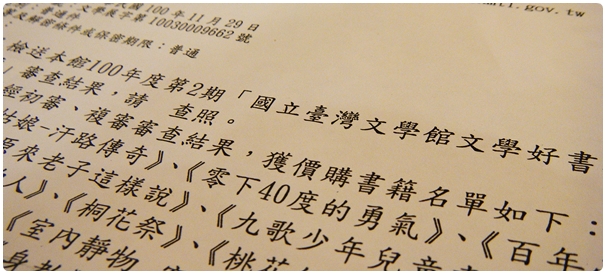 .gov.tw
民國100年11月29日
文學展字第10030009662號
及解密條件或保密期限：普通
檢送本館100年度第2期「國立臺灣文學館文學好書
」審查結果，請 查照。
經初審、複審審查結果，獲價購書籍名單如下：
姑娘-汗路傳奇》、《零下40度的勇氣》、《百年
原來老子這樣說》、《九歌少年兒童
人》、《桐花祭》、《桃花
《室內靜物